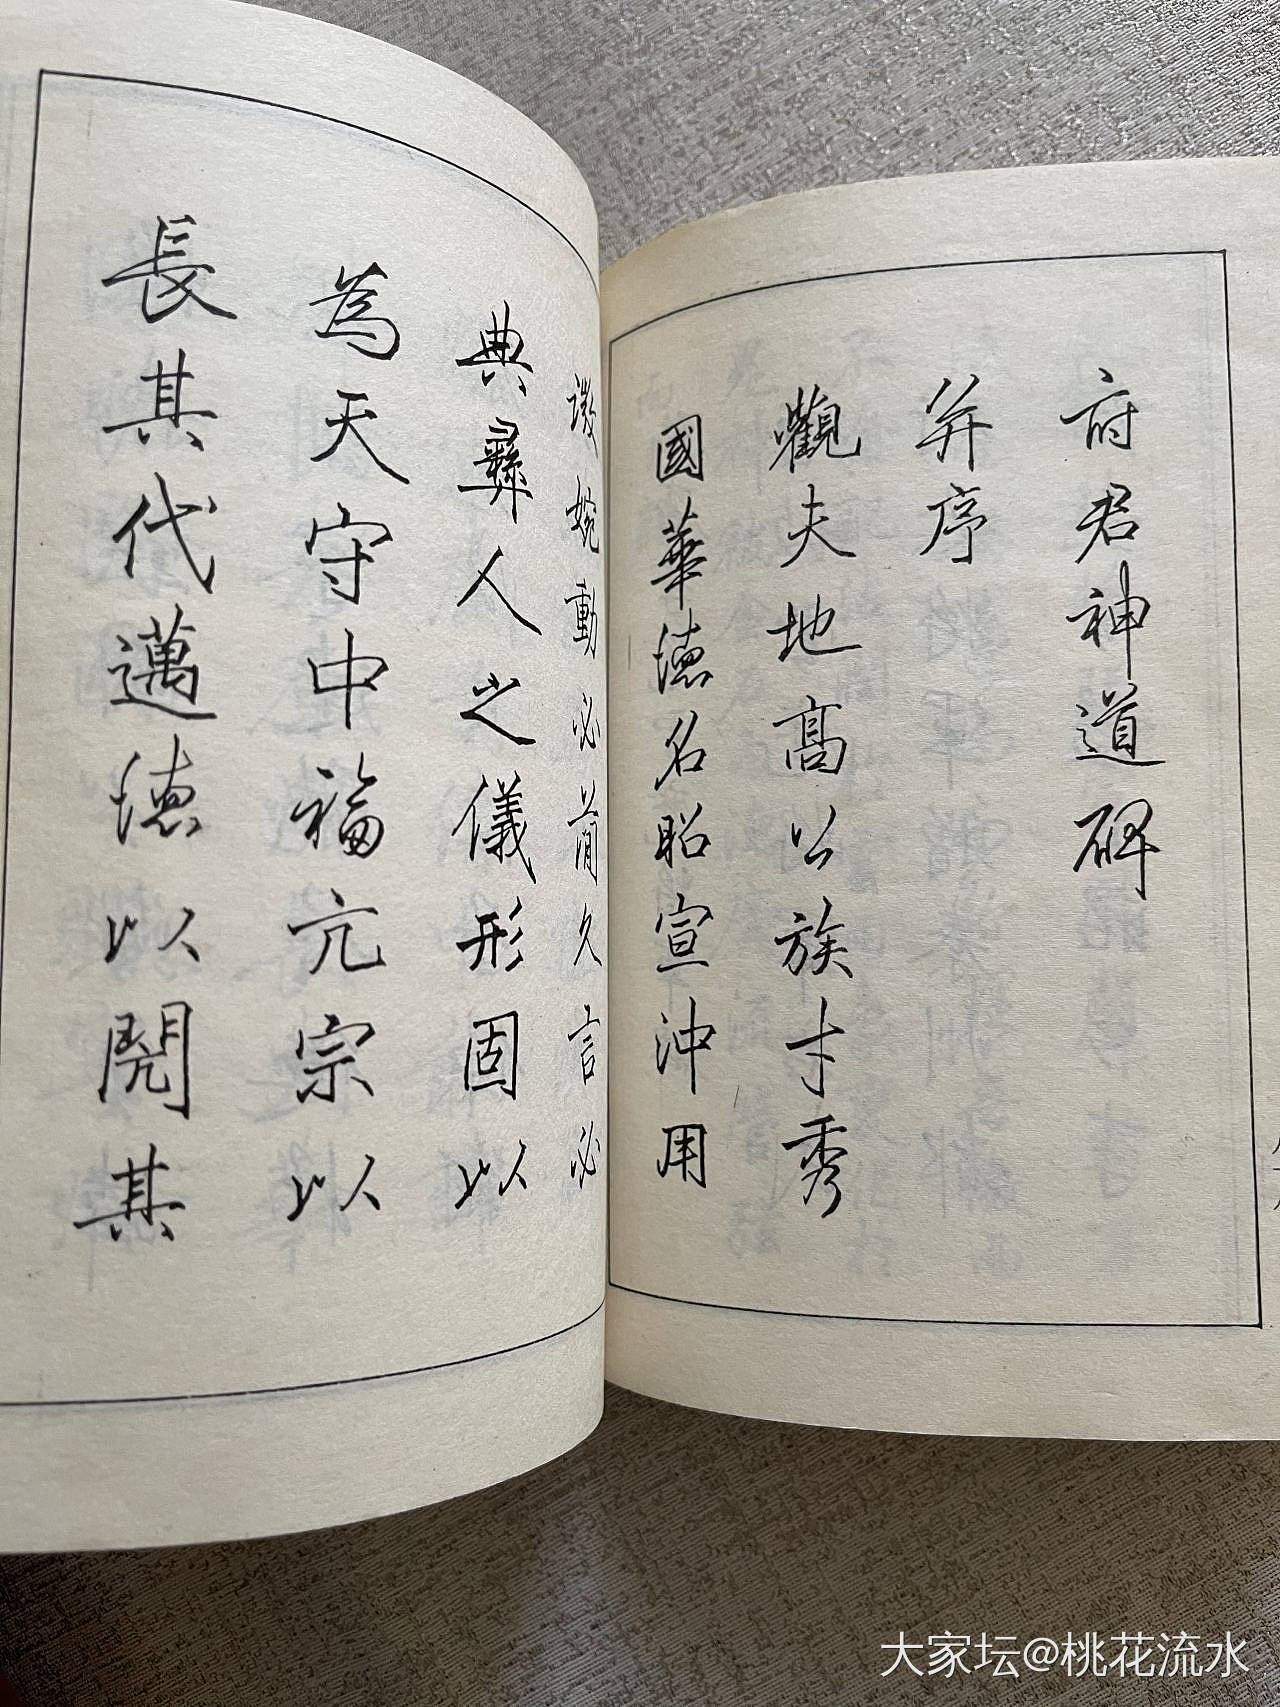 府君神道碑
并序
觀夫地高公族才秀
國華德名昭宣沖用
微婉動必簡久言必
典彝人之儀形固以
為天守中福亢宗以
長其代邁德以閱其
大家坛@桃花流水